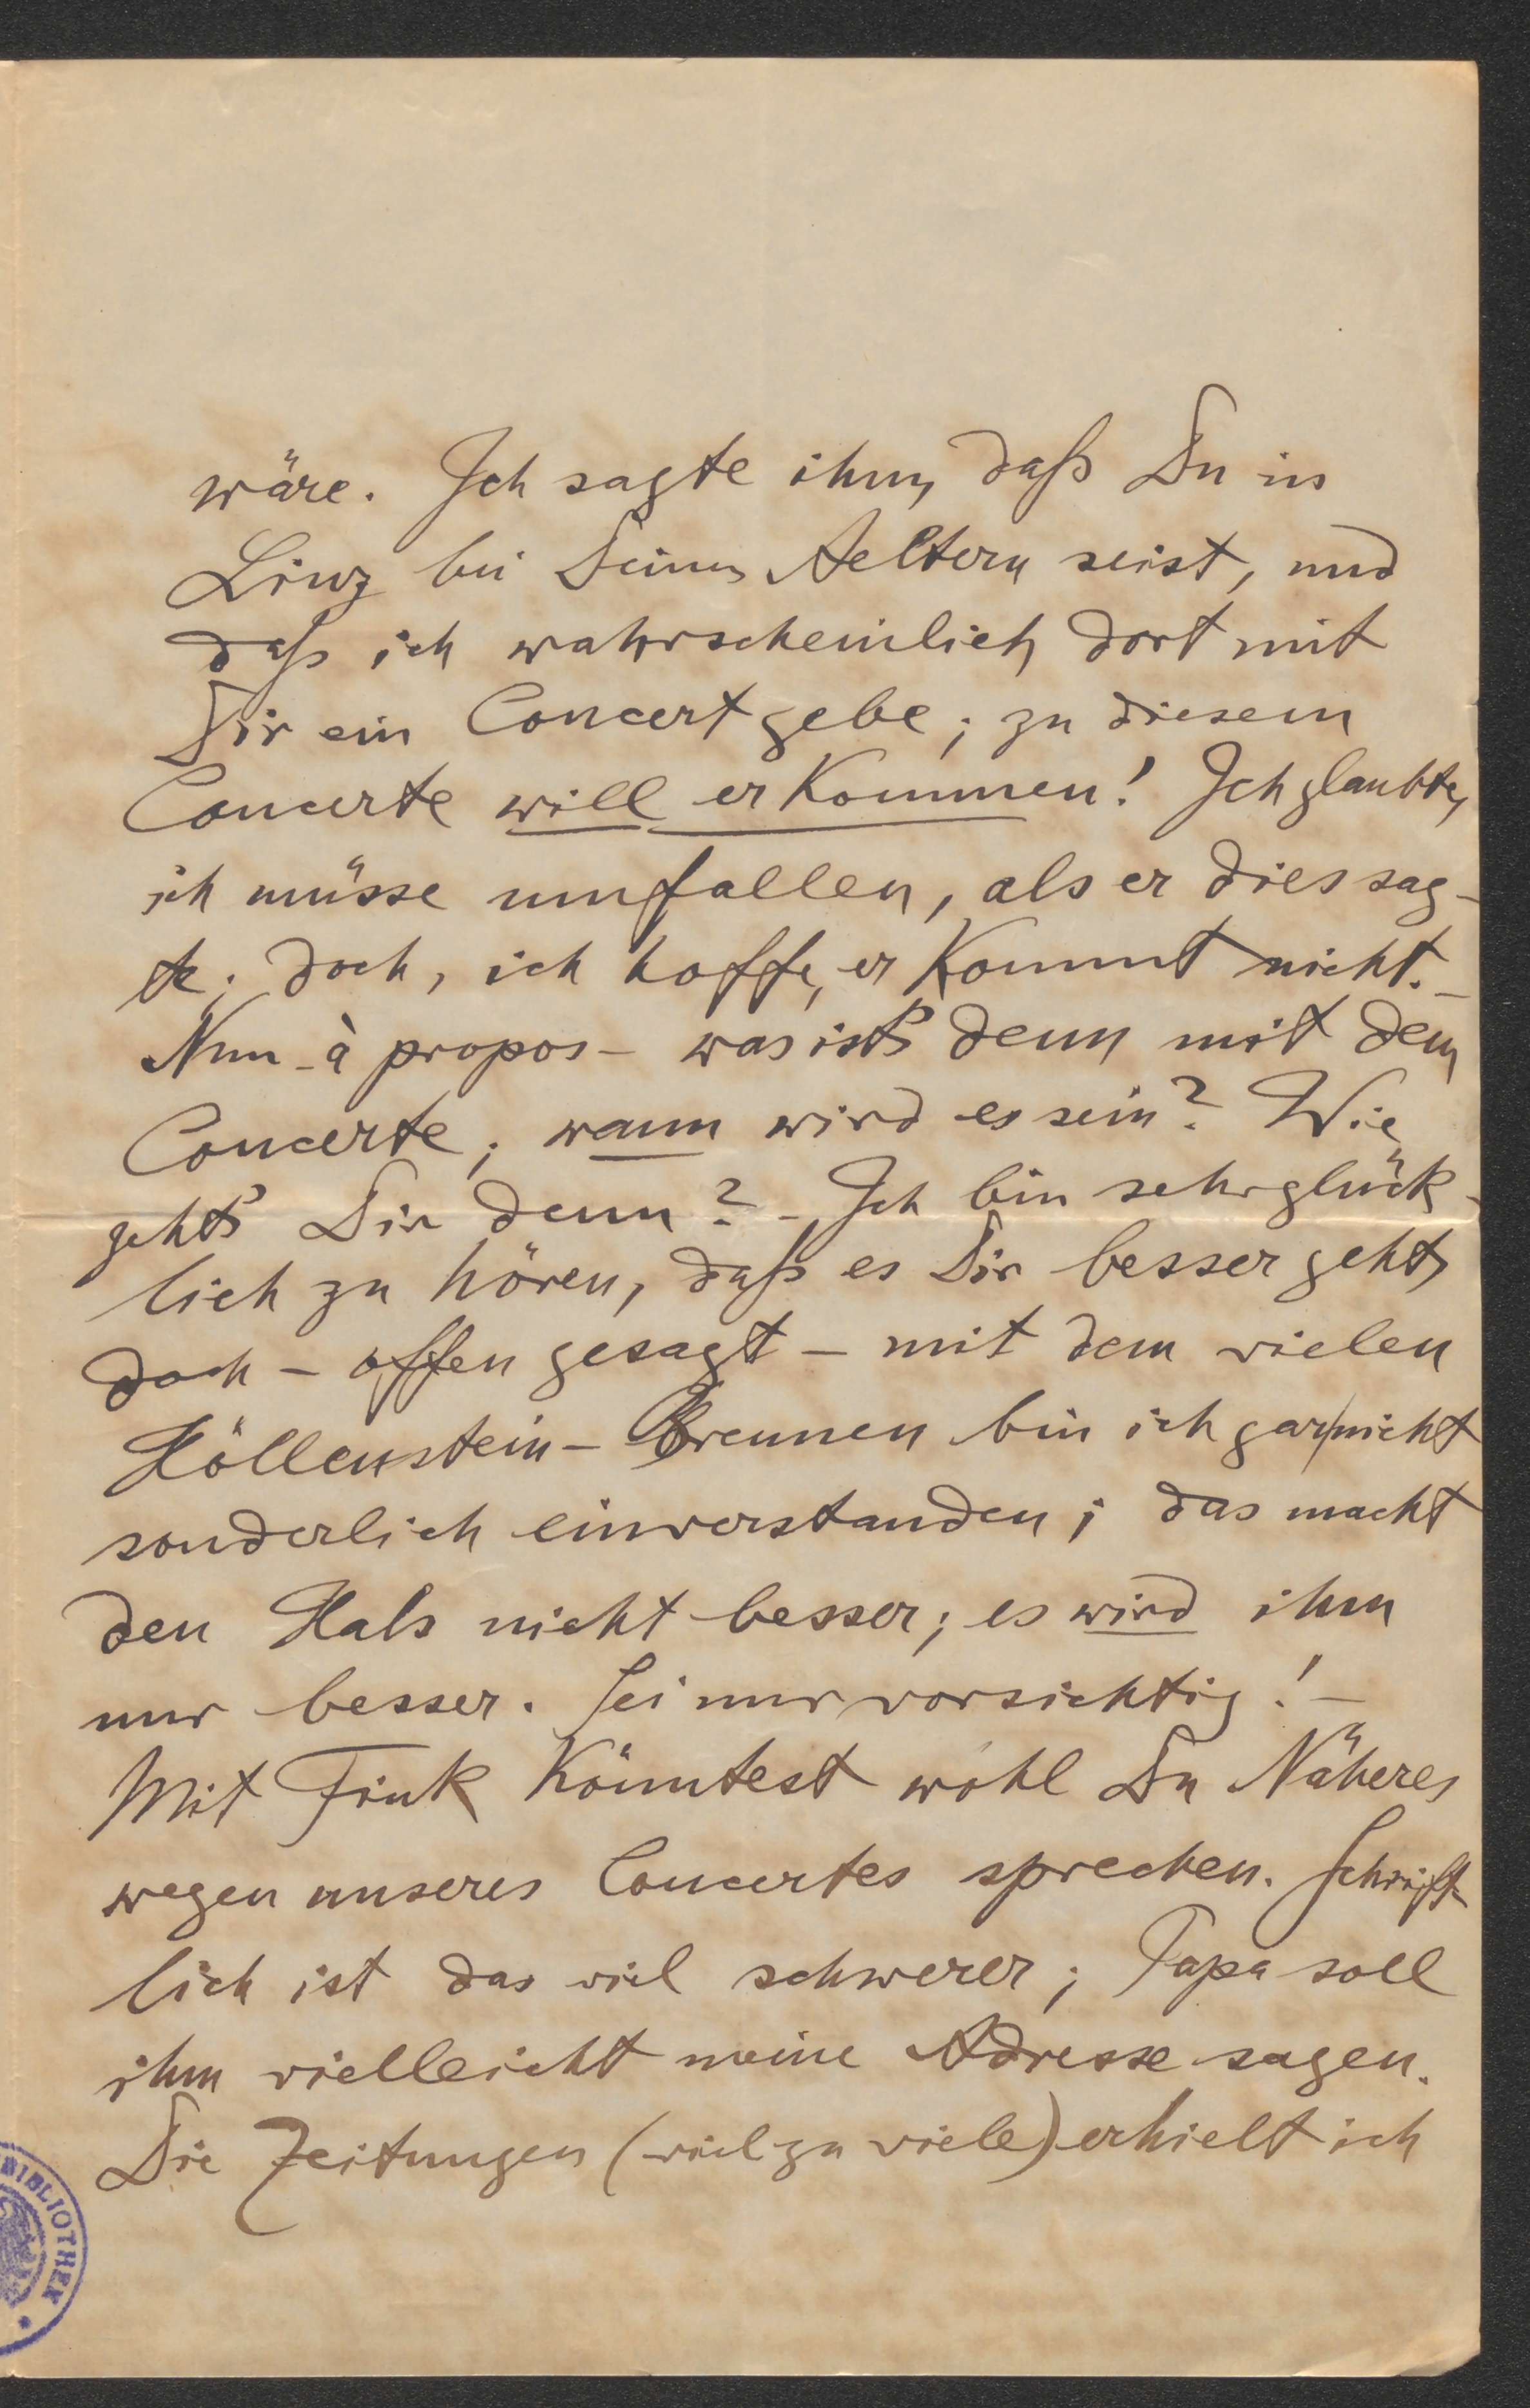 wäre. Ich sagte ihm, daß Du in
Linz bei Deinen Aeltern seist, und
daß ich wahrscheinlich dort mit
Dir ein Concert gebe; zu diesem
Concerte will er kommen! Ich glaubte,
ich müsse umfallen, als er dies sag-
te; doch, ich hoffe, er kommt nicht. -
Nun - à propos - was ist's denn mit dem
Concerte; wann wird es sein? Wie
geht's Dir denn? - Ich bin sehr glück-
lich zu hören, daß es Dir besser geht,
doch - offen gesagt - mit dem vielen
Höllenstein-Brennen bin ich gar nicht
sonderlich einverstanden; das macht
den Hals nicht besser; es wird ihm
nur besser. Sei nur vorsichtig! -
Mit Fink könntest wohl Du Näheres
wegen unseres Concertes sprechen. Schrift-
lich ist das viel schwerer; Papa soll
ihm vielleicht meine Adresse sagen.
Die Zeitungen (viel zu viele) erhielt ich
BIBLIOTHEK